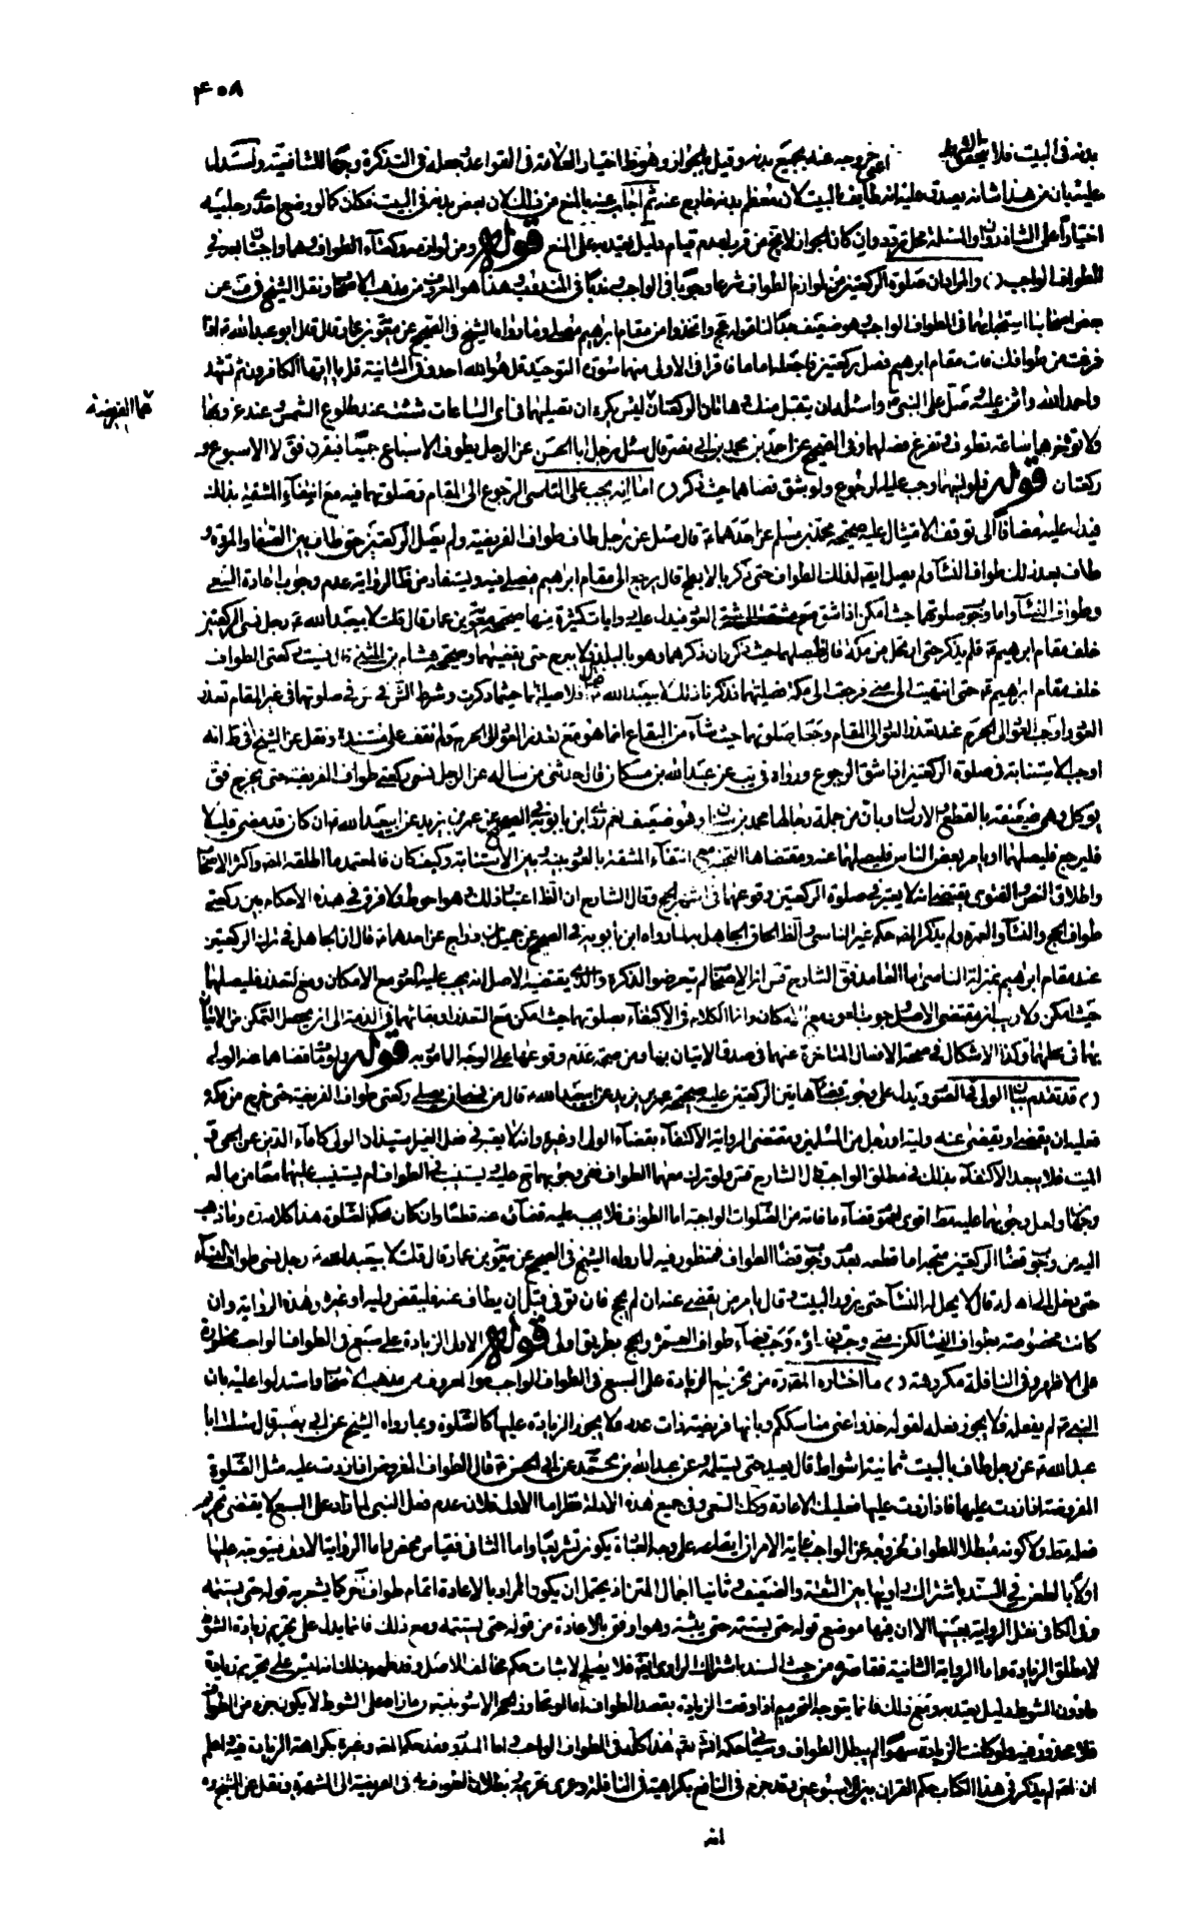 ٤٠٨
بدنه فى البيت فلا يتحقق الشرط اعنى خروجه عنه بجميع بدنه وقيل بالجواز وهو ظ اختيار العلامة فى القواعد وجعله فى التذكرة وجها للشافعية واستدل
عليه بان من هذا شانه يصدق عليه انه طايف بالبيت لان معظم بدنه خارج عنه ثم اجاب عنه بالمنع من ذلك لان بعض بدنه فى البيت فكان كما لو وضع احدى رجليه
اختيارا على الشاذروان والمسئلة محل تردد وان كان الجواز لا يخ من قرب لعدم قيام دليل يعتد به على المنع قوله ومن لوازمه ركعتا الطواف وهما واجبتان بعده فى
الطواف الواجب والمراد ان صلوة الركعتين من لوازم الطواف شرعا وجوبا فى الواجب وندبا فى المندوب وهذا هو المعروف من مذهب الاصحاب ونقل الشيخ فى ف عن
بعض اصحابنا استحبابهما فى الطواف الواجب وهو ضعيف جدا لنا قوله تع واتخذوا من مقام ابرهيم مصلى وما رواه الشيخ فى الصحيح عن معوية بن عمار قال قال ابو عبد الله ع اذا
فرغت من طوافك فات مقام ابرهيم فصل ركعتين واجعله اماما فاقرا فى الاولى منهما سورة التوحيد قل هو الله احد وفى الثانية قل يا ايها الكافرون ثم تشهد
واحمد الله واثن عليه وصل على النبى ص واسئله ان يتقبل منك وهاتان الركعتان ليس يكره ان تصليهما فى اى الساعات شئت عند طلوع الشمس وعند غروبها
هما الفريضة
ولا تؤخرهما ساعة تطوف وتفرغ فصلهما وفى الصحيح عن احمد بن محمد بن ابى نصر قال سئل رجل ابا الحسن عن الرجل يطوف الاسباع جميعا فيقرن فق لا الاسبوع و
ركعتان قوله ولو نسيهما وجب عليه الرجوع ولو شق قضاهما حيث ذكر اما انه يجب على الناسى الرجوع الى المقام وصلوتهما فيه مع انتفاء المشقة بذلك
فيدل عليه مضافا الى توقف الامتثال عليه صحيحة محمد بن مسلم عن احدهما ع قال سئل عن رجل طاف طواف الفريضة ولم يصل الركعتين حتى طاف بين الصفا والمروة و
طاف بعد ذلك طواف النساء ولم يصل ايضا لذلك الطواف حتى ذكر بالابطح قال يرجع الى مقام ابرهيم فيصلى فيه ويستفاد من ظ الرواية عدم وجوب اعادة السعى
وطواف النساء واما وجوب صلوتهما حيث امكن اذا شق العود فيدل عليه روايات كثيرة منها صحيحة معوية بن عمار قال قلت لابى عبد الله ع رجل نسى الركعتين
خلف مقام ابرهيم ع فلم يذكر حتى ارتحل من مكة قال فليصلهما حيث ذكر وان ذكرهما وهو بالبلد فلا يبرح حتى يقضيهما وصحيحة هشام بن المثنى قال نسيت ركعتى الطواف
خلف مقام ابرهيم ع حتى انتهيت الى منى فرجعت الى مكة فصليتهما فذكرنا ذلك لابى عبد الله ع فقال الا صلاهما حيثما ذكرت وشرط الش فى س فى صلوتهما فى غير المقام تعذر
العود واوجب العود الى الحرم عند تعذر العود الى المقام وجعل صلوتهما حيث شاء من البقاع انما هو مع تعذر العود الى الحرم ولم نقف على مستنده ونقل عن الشيخ فى ط انه
اوجب الاستنابة فى صلوة الركعتين اذا شق الرجوع ورواه فى يب عن عبد الله بن مسكان قال حدثنى من ساله عن الرجل نسى ركعتى طواف الفريضة حتى يخرج فق
يوكل وهى ضعيفة بالقطع والارسال وبان من جملة رجالها محمد بن سنان وهو ضعيف نعم روى ابن بابويه فى الصحيح عن عمر بن يزيد عن ابى عبد الله ع ان كان قد مضى قليلا
فليرجع فليصلهما او يامر بعض الناس فليصلهما عنه ومقتضاها التخيير مع انتفاء المشقة بالعود بينه وبين الاستنابة وكيف كان فالمعتمد ما اطلقه المص واكثر الاصحاب
واطلاق النص والفتوى يقتضى انه لا يعتبر فى صلوة الركعتين وقوعهما فى اشهر الحج وقال الشارح ان الظ اعتبار ذلك وهو احوط ولا فرق فى هذه الاحكام بين ركعتى
طواف الحج والنساء والعمرة ولم يذكر المص حكم غير الناسى والظ الحاق الجاهل به لما رواه ابن بابويه فى الصحيح عن جميل بن دراج عن احدهما ع قال ان الجاهل فى ترك الركعتين
عند مقام ابرهيم بمنزلة الناسى اما العامد فق الشارح قس ان الاصحاب لم يتعرضوا لذكره والذى يقتضيه الاصل انه يجب عليه العود مع الامكان ومع التعذر فليصلهما
حيث امكن ولا ريب ان مقتضى الاصل وجوب العود مع الامكان وانما الكلام فى الاكتفاء بصلوتهما حيث امكن مع التعذر او بقائهما فى الذمة الى ان يحصل التمكن من الاتيان
بهما فى محلهما وكذا الاشكال فى صحة الافعال المتاخرة عنهما فى صدق الاتيان بها ومن صحة عدم وقوعها على الوجه المامور به قوله ولو مات قضاهما عنه الولى
قد تقدم بيان الولى فى الصوم ويدل على وجوب قضاء هاتين الركعتين عليه صحيحة عمر بن يزيد عن ابى عبد الله ع قال من نسى ان يصلى ركعتى طواف الفريضة حتى خرج من مكة
فعليه ان يقضى او يقضى عنه وليه او رجل من المسلمين ومقتضى الرواية الاكتفاء بقضاء الولى او غيره وانه لا يعتبر فى فعل الغير استيذان الولى كما فاء الدين عن الحى و
الميت فلا يبعد الاكتفاء بذلك فى مطلق الواجب قال الشارح قس ولو ترك معهما الطواف ففى وجوبهما ح عليه ويستنيب فى الطواف ام يستنيب عليهما معا من ماله
وجهان ولعل وجوبهما عليه مط اقوى لعموم قضاء ما فاته من الصلوات الواجبة اما الطواف فلا يجب عليه قضاؤه عنه قطعا وان كان حكم الصلوة هذا كلامه وما ذهب
اليه من وجوب قضاء الركعتين متجه اما قطعه بعدم وجوب قضاء الطواف فمنظور فيه لما رواه الشيخ فى الصحيح عن معوية بن عمار قال قلت لابى عبد الله ع رجل نسى طواف النساء
حتى دخل اهله قال لا يحل له النساء حتى يزور البيت وقال يامر من يقضى عنه ان لم يحج فان توفى قبل ان يطاف عنه فليقض وليه او غيره وهذه الرواية وان
كانت مخصوصة بطواف النساء لكن متى وجب قضاء طواف العمرة والحج بطريق اولى قوله الاولى الزيادة على سبع فى الطواف الواجب محظورة
على الاظهر وفى النافلة مكروهة ما اختاره المص ره من تحريم الزيادة على السبع فى الطواف الواجب هو المعروف من مذهب الاصحاب واستدلوا عليه بان
النبى ص لم يفعله فلا يجوز فعله لقوله خذوا عنى مناسككم وبانها فريضة ذات عدد فلا يجوز الزيادة عليها كالصلوة وبما رواه الشيخ عن ابى بصير قال سئلت ابا
عبد الله ع عن رجل طاف بالبيت ثمانية اشواط قال يعيد حتى يستتمه وعن عبد الله بن محمد عن ابى الحسن ع قال الطواف المفروض اذا زدت عليه مثل الصلوة
المفروضة اذا زدت عليها فاذا زدت عليها فعليك الاعادة وكك السعى وفى جميع هذه الادلة نظر اما الاول فلان عدم فعل النبى لما زاد على السبع لا يقتضى تحريم
فعله مط ولا كونه مبطلا للطواف بخروجه عن الواجب غاية الامر ان ايقاعه على وجه العبادة يكون تشريعا واما الثانى فقياس محض واما الرواية الاولى فيتوجه عليها
اولا بالطعن فى السند باشتراك راويها بين الثقة والضعيف وثانيا اجمال المتن اذ يحتمل ان يكون المراد بالاعادة اتمام طواف آخر كما يشعر به قوله حتى يستتمه
وفى الكافى نقل الرواية بعينها الا ان فيها موضع قوله حتى يستتمه حتى يثبته وهو اوفق بالاعادة من قوله حتى يستتمه ومع ذلك فانما يدل على تحريم زيادة الشوط
لا مطلق الزيادة واما الرواية الثانية فقاصرة من حيث السند باشتراك الراوى ايضا فلا يصلح لاثبات حكم مخالف للاصل وقد ظهر بذلك انه ليس على تحريم زيادة
ما دون الشوط دليل يعتد به ومع ذلك فانما يتوجه التحريم اذا وقعت الزيادة بقصد الطواف اما لو تجاوز الحجر الاسود بنية ان ما زاد على الشوط لا يكون جزء من الطواف
فلا محذور فيه ولو كانت الزيادة سهوا لم يبطل الطواف وسياتى حكمه انش نعم هذا كله فى الطواف الواجب واما المندوب فقد حكم المص وغيره بكراهة الزيادة فيه واعلم
ان المص لم يذكر فى هذا الكتاب حكم القران بين الاسبوعين وقد جزم فى النافع بكراهته فى النافلة وعزى تحريمه وبطلان الطواف به فى الفريضة الى الشهرة ونقل عن الشيخ ره
انه